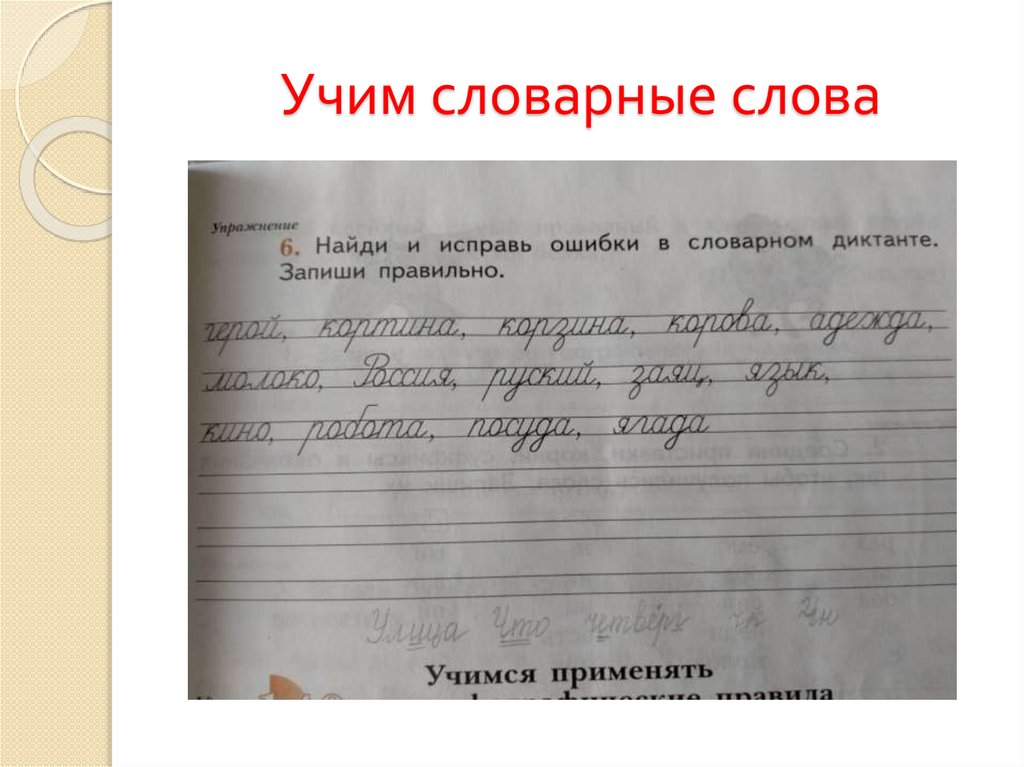 Учим словарные слова
Упражнение
6. Найди и исправь ошибки в словарном диктанте.
Запиши правильно.
герой, кортина, корзина, корова, адежда,
молоко, Россия, руский, заяц, язык,
кино, робота, посуда, ягада
Улица Что четверг чк
Учимся применять
орфографические правила